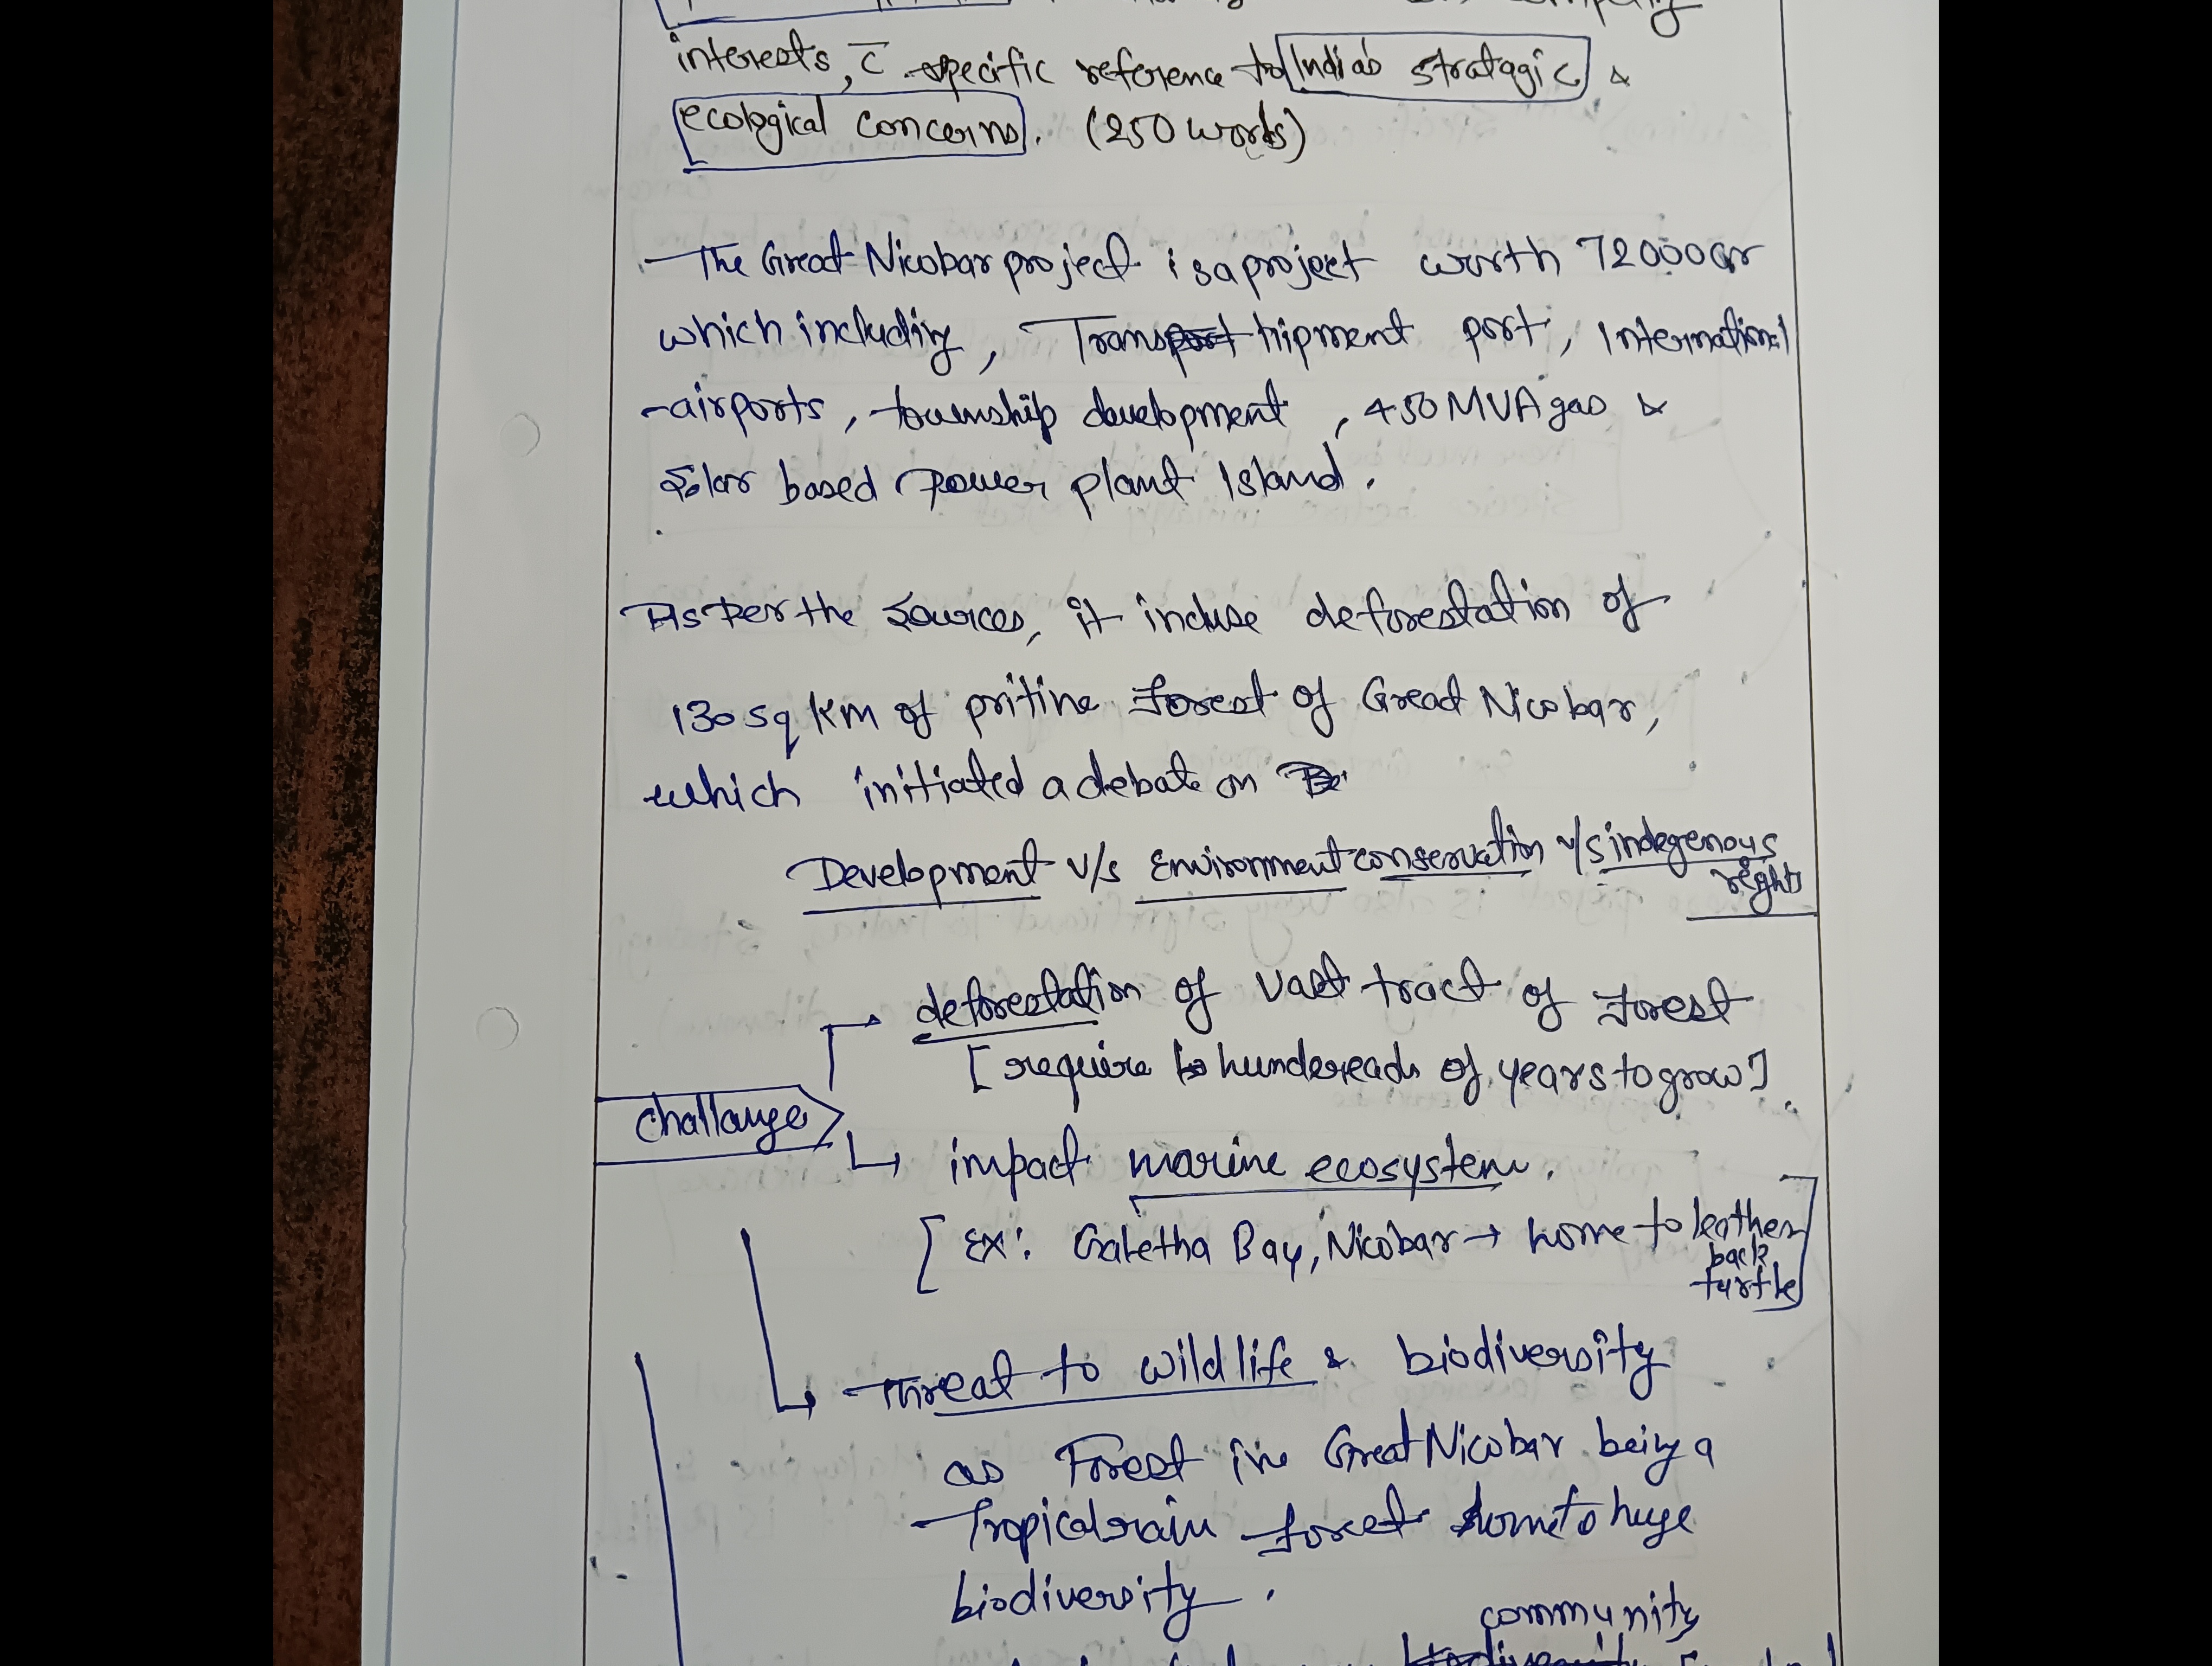 interests, c̄ specific reference to India's stratagic &
ecological concerns. (250 words)
The Great Nicobar project is a project worth 72000cr
which including, Transport tripment port, International
airports, township development, 450 MVA gas &
Solar based Power plant Island.
As Per the Sources, it incluse deforestation of
130 sq km of pritine Forest of Great Nicobar,
which initiated a debate on
Development v/s Environment conservation v/s indegenous
rights
deforestation of vast tract of Forest
[require to hundereads of years to grow]
challange
impact marine ecosystem.
[Ex: Galetha Bay, Nicobar → home to leather
back
turtle]
Threat to wild life & biodiversity
as Forest in Great Nicobar being a
Tropical rain forest home to huge
biodiversity.
community